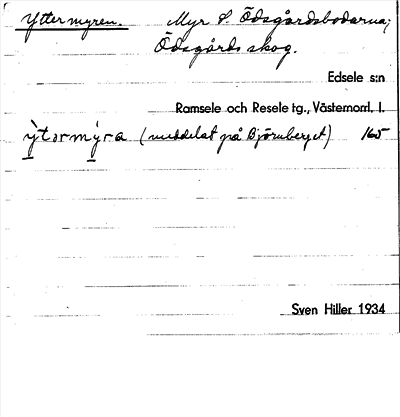 Yttermyren. Myr S. Ödsgårdsbodarna,
Ödsgårds skog.
Edsele s:n
Ramsele och Resele tg., Västernorrl. l.
ỳtərmýra (meddelat på Björnberget) 165
Sven Hiller 1934